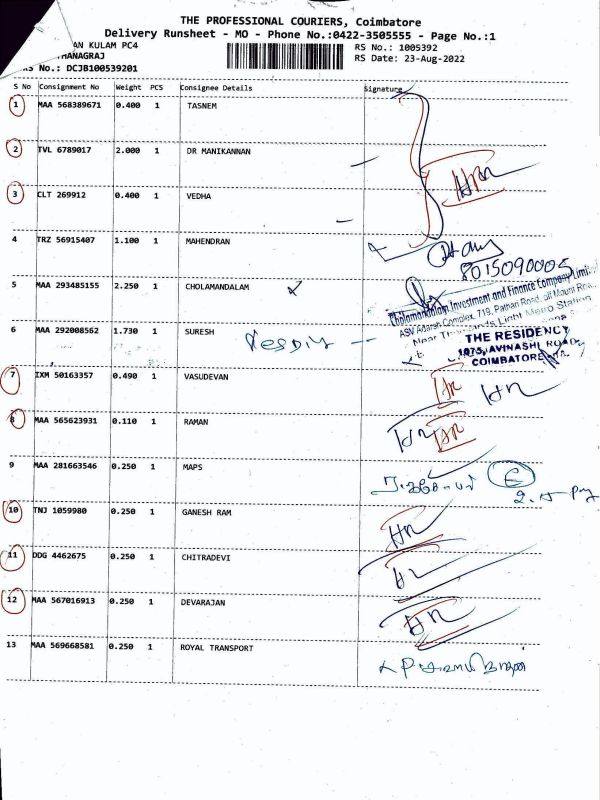 THE PROFESSIONAL COURIERS, Coimbatore
Delivery Runsheet - MO - Phone No.:0422-3505555 - Page No.:1
AN KULAM PC4 RS No.: 1005392
THANAGRAJ RS Date: 23-Aug-2022
RS No.: DCJB100539201
S No Consignment No Weight PCS Consignee Details Signature
1 MAA 568389671 0.400 1 TASNEM
2 TVL 6789017 2.000 1 DR MANIKANNAN
3 CLT 269912 0.400 1 VEDHA
4 TRZ 56915407 1.100 1 MAHENDRAN
8015090005
5 MAA 293485155 2.250 1 CHOLAMANDALAM
Cholamandalam Investment and Finance Company Limited
ASV Adarsh Complex, 719, Pathari Road, off Mount Road,
Near Light Metro Station
6 MAA 292008562 1.730 1 SURESH
THE RESIDENCY
1075, AVINASHI ROAD,
COIMBATORE
7 IXM 50163357 0.490 1 VASUDEVAN
8 MAA 565623931 0.110 1 RAMAN
9 MAA 281663546 0.250 1 MAPS
10 TNJ 1059980 0.250 1 GANESH RAM
11 DDG 4462675 0.250 1 CHITRADEVI
12 MAA 567016913 0.250 1 DEVARAJAN
13 MAA 569668581 0.250 1 ROYAL TRANSPORT